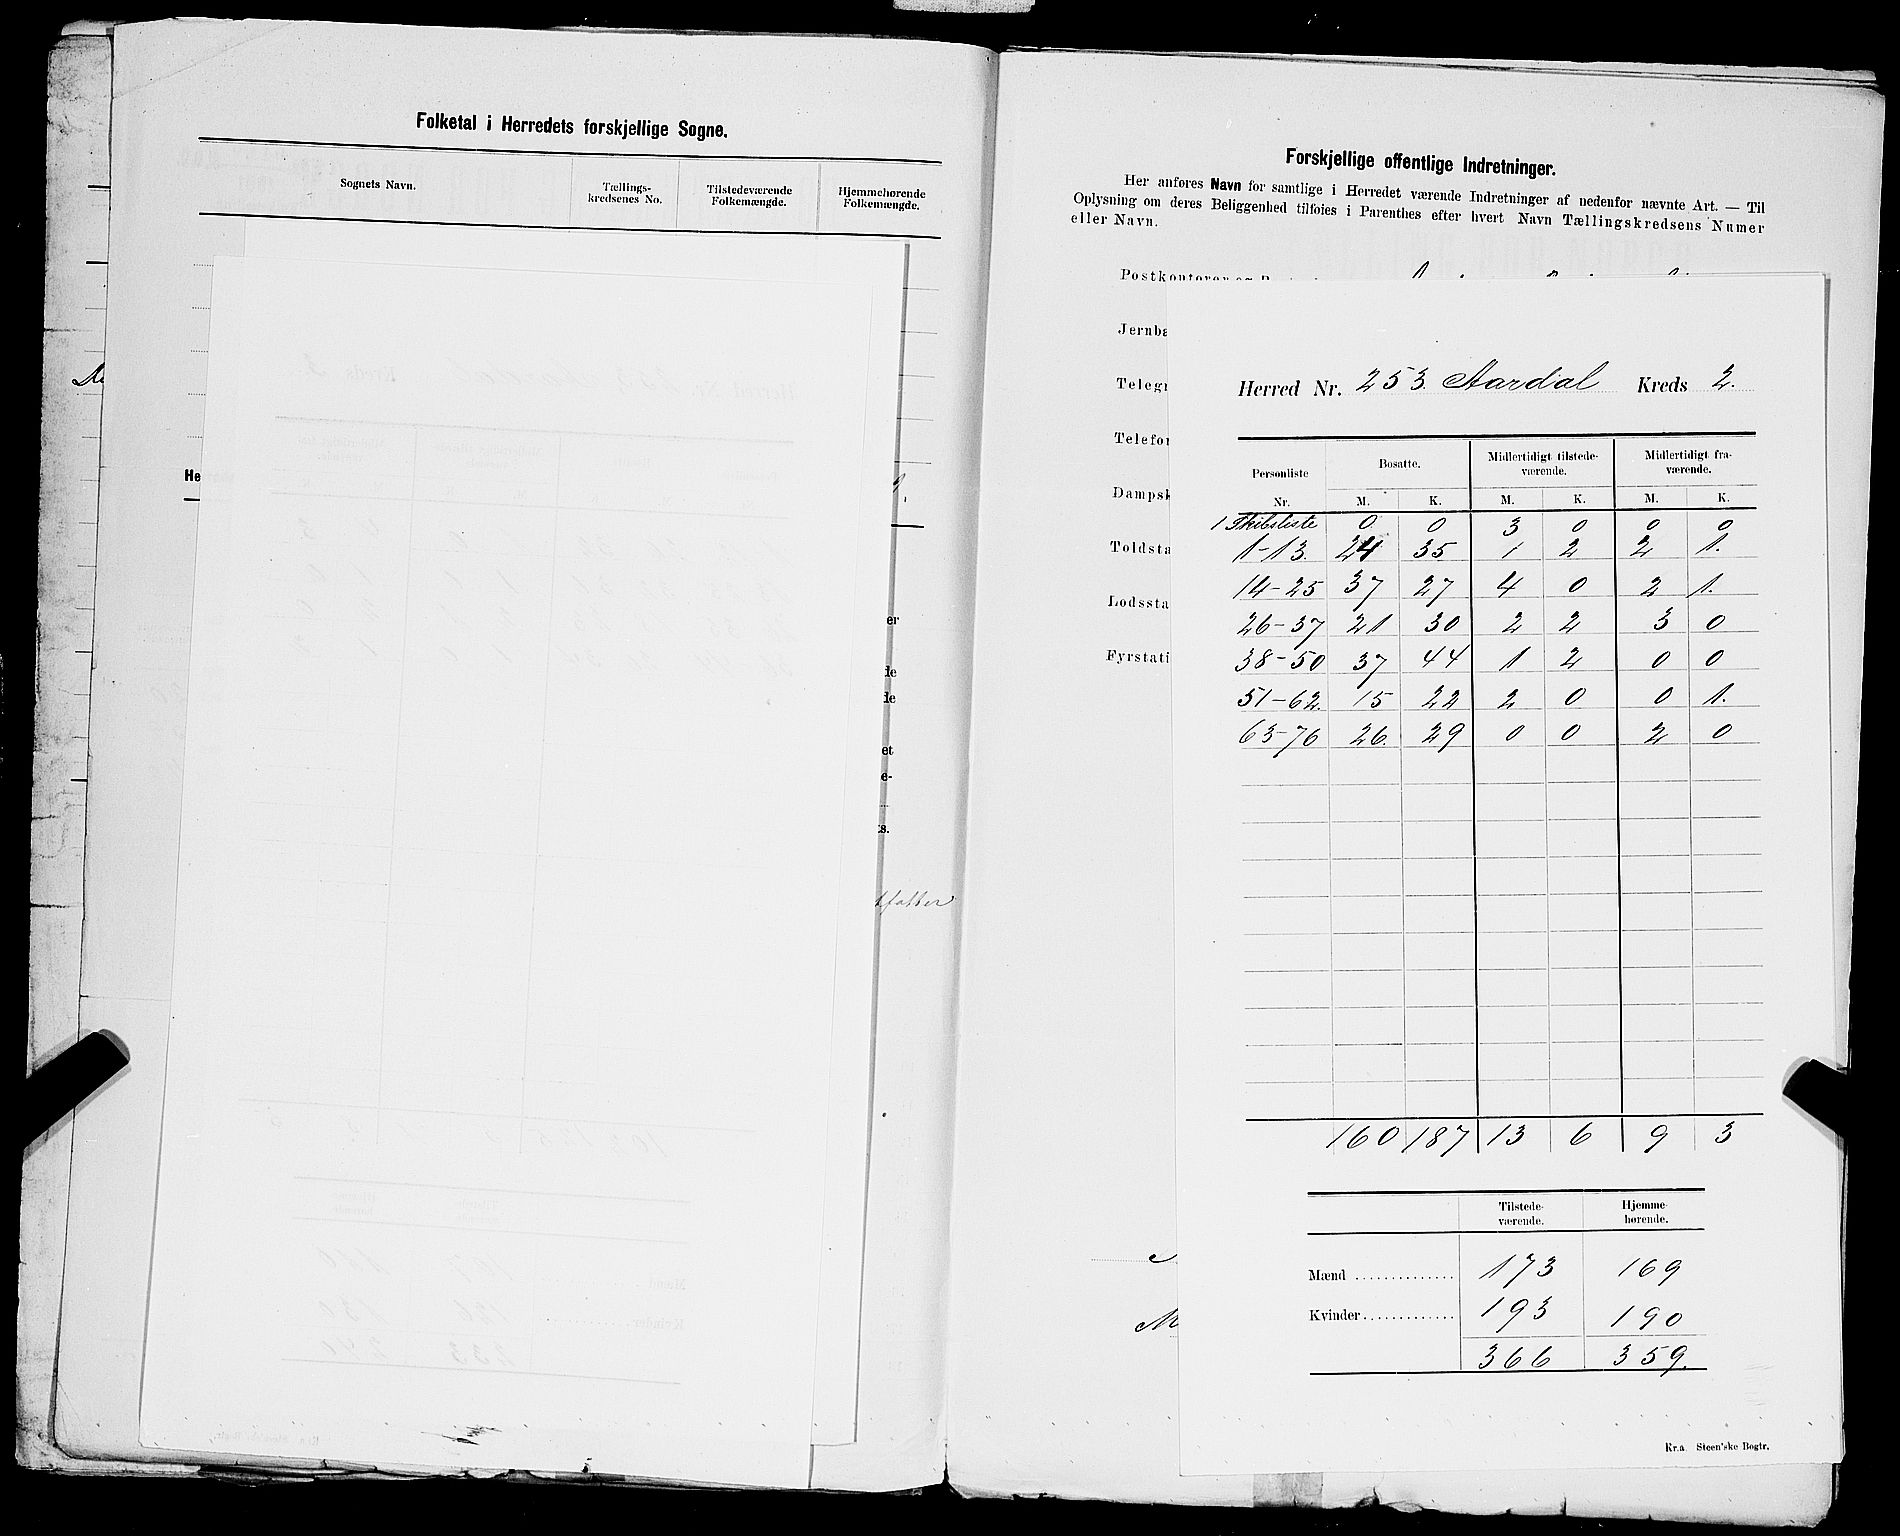 Folketal i Herredets forskjellige Sogne.
Sognets Navn. Tællings-kredsenes No. Tilstedeværende Folkemængde. Hjemmehørende Folkemængde.
He
er
de
de
et
e-
s.
Forskjellige offentlige Indretninger.
Her anføres Navn for samtlige i Herredet værende Indretninger af nedenfor nævnte Art. — Til
Oplysning om deres Beliggenhed tilføies i Parenthes efter hvert Navn Tællingskredsens Numer
eller Navn.
Postkontorer og
Jernba
Telegr
Telefor
Dampsk
Toldsta
Lodssta
Fyrstati
Herred Nr. 253. Aardal Kreds 2.
Personliste Bosatte. Midlertidigt tilstede-værende. Midlertidigt fra-værende.
Nr. M. K. M. K. M. K.
1 Skibsliste 0 0 3 0 0 0
1-13. 24 35 1 2 2 1.
14-25 37 27 4 0 2 1.
26-37 21 30 2 2 3 0
38-50 37 44 1 2 0 0
51-62. 15 22 2 0 0 1.
63-76 26. 29 0 0 2 0
160 187 13 6 9 3
Tilstede-værende. Hjemme-hørende.
Mænd .............. 173 169
Kvinder............. 193 190
366 359.
Kr.a. Steen'ske Bogtr.